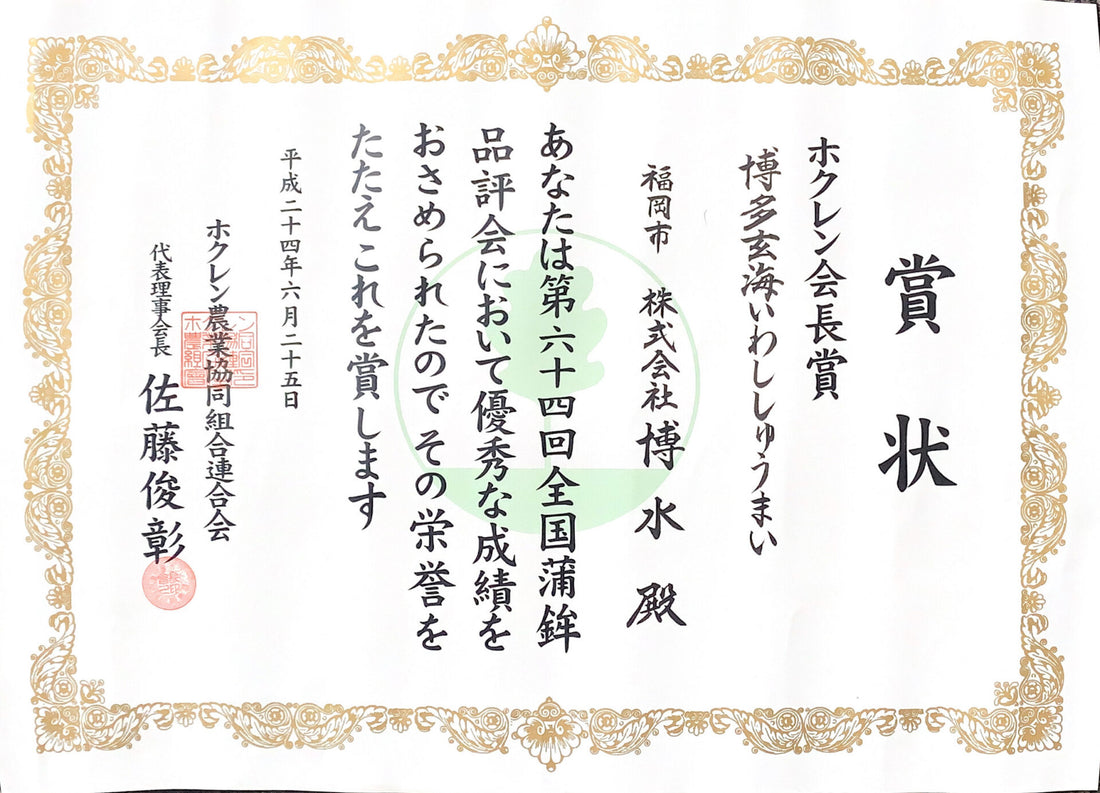 賞状
ホクレン会長賞
博多玄海いわししゅうまい
福岡市 株式会社 博水 殿
あなたは第六十四回全国蒲鉾
品評会において優秀な成績を
おさめられたので その栄誉を
たたえこれを賞します
平成二十四年六月二十五日
ホクレン農業協同組合連合会
代表理事会長 佐藤俊彰